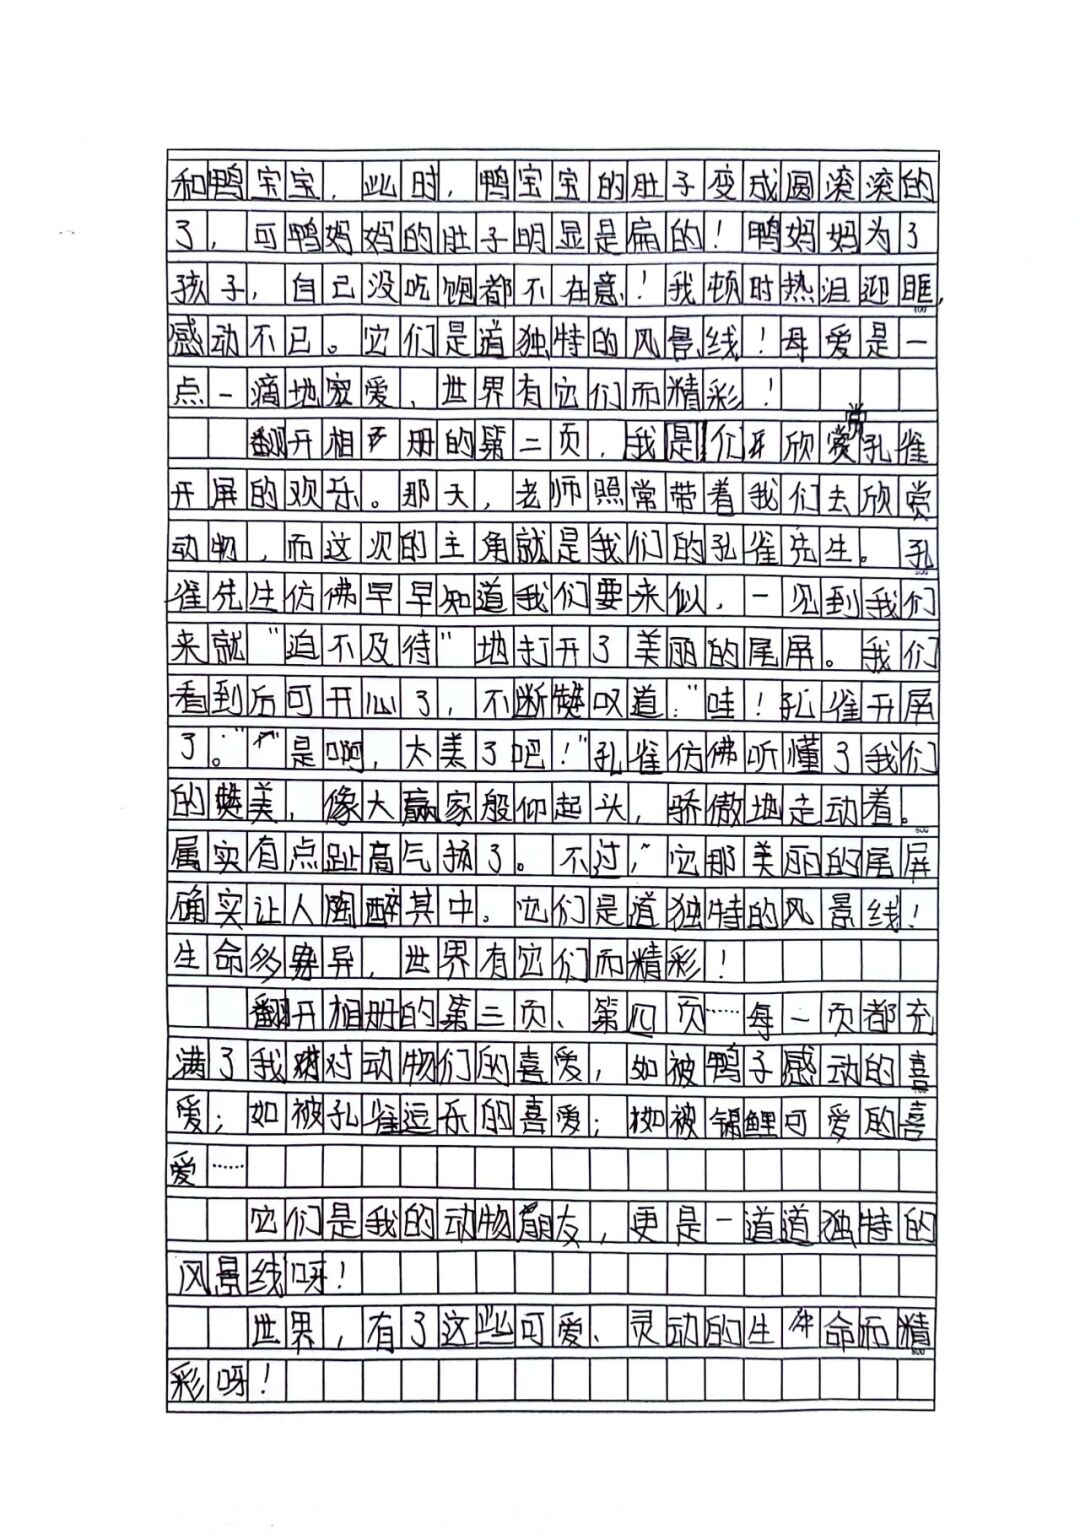 和鸭宝宝，此时，鸭宝宝的肚子变成圆滚滚的
了，可鸭妈妈的肚子明显是扁的！鸭妈妈为了
孩子，自己没吃饱都不在意！我顿时热泪迎眶，
400
感动不已。它们是道独特的风景线！母爱是一
点一滴地宠爱、世界有它们而精彩！
翻开相册的第二页，我们在欣赏孔雀
开屏的欢乐。那天，老师照常带着我们去欣赏
动物，而这次的主角就是我们的孔雀先生。孔
500
雀先生仿佛早早知道我们要来似，一见到我们
来就“迫不及待”地打开了美丽的尾屏。我们
看到后可开心了，不断赞叹道：“哇！孔雀开屏
了。”“是啊，太美了吧！”孔雀仿佛听懂了我们
的赞美，像大赢家般仰起头，骄傲地走动着。
600
属实有点趾高气扬了。不过，它那美丽的尾屏
确实让人陶醉其中。它们是道独特的风景线！
生命多异，世界有它们而精彩！
翻开相册的第三页、第四页……每一页都充
满了我对动物们的喜爱，如被鸭子感动的喜
爱；如被孔雀逗乐的喜爱；如被锦鲤可爱的喜
爱……
它们是我的动物朋友，更是一道道独特的
风景线呀！
世界，有了这些可爱、灵动的生命而精
800
彩呀！